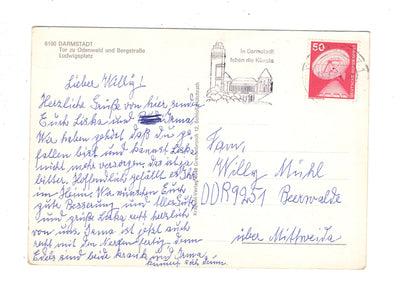 6100 DARMSTADT
Tor zu Odenwald und Bergstraße
Ludwigsplatz
In Darmstadt
leben die Künste
50
Lieber Willy!
Herzliche Grüße von hier senden
Euch Liska und Irma.
Wir haben gehört daß Du ge-
fallen bist und kannst Liska
nicht mehr versorgen. Das ist ja
bitter. Hoffentlich gefällt es Ihr
im Heim. Wir wünschen Euch
gute Besserung und Alles Gute
und grüße Liska recht herzlich
von uns. Irma ist jetzt auch
recht mit den Nerven fertig, denn
sind beide krank und Irma
kümmert sich drum.
Fam.
Willy Mühl
DDR 9251 Beerwalde
über Mittweida